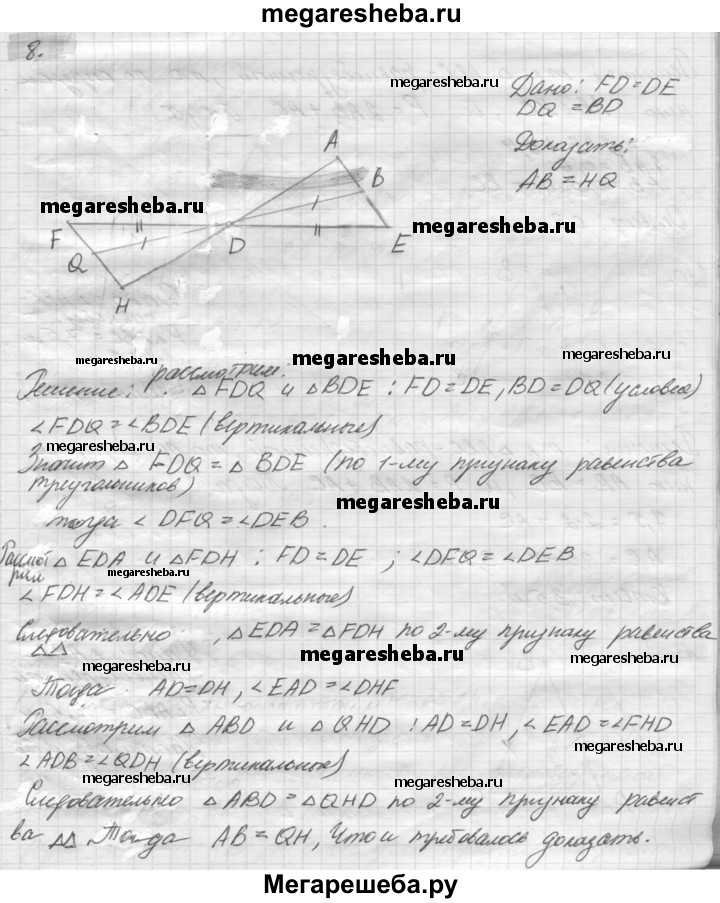 megaresheba.ru
8.
megaresheba.ru
Дано: FD=DE
DQ=BD
Доказать:
AB=HQ
A
B
megaresheba.ru
F
D
E
megaresheba.ru
Q
H
megaresheba.ru
megaresheba.ru
megaresheba.ru
рассмотрим:
Решение: △FDQ и △BDE : FD=DE, BD=DQ (условие)
∠FDQ=∠BDE (вертикальные)
megaresheba.ru
Значит △ FDQ=△ BDE (по 1-му признаку равенства
треугольников)
megaresheba.ru
тогда ∠DFQ=∠DEB.
Рассмотрим △EDA и △FDH : FD=DE ; ∠DFQ=∠DEB
megaresheba.ru
∠FDH=∠ADE (вертикальные)
Следовательно , △EDA=△FDH по 2-му признаку равенства
△△
megaresheba.ru
megaresheba.ru
megaresheba.ru
Тогда AD=DH, ∠EAD=∠DHF
Рассмотрим △ ABD и △ QHD : AD=DH, ∠EAD=∠FHD
megaresheba.ru
∠ADB=∠QDH (вертикальные)
megaresheba.ru
megaresheba.ru
Следовательно △ABD=△QHD по 2-му признаку равенст
ва △△ Тогда AB=QH, Что и требовалось доказать.
megaresheba.ru
megaresheba.ru
Мегарешеба.ру